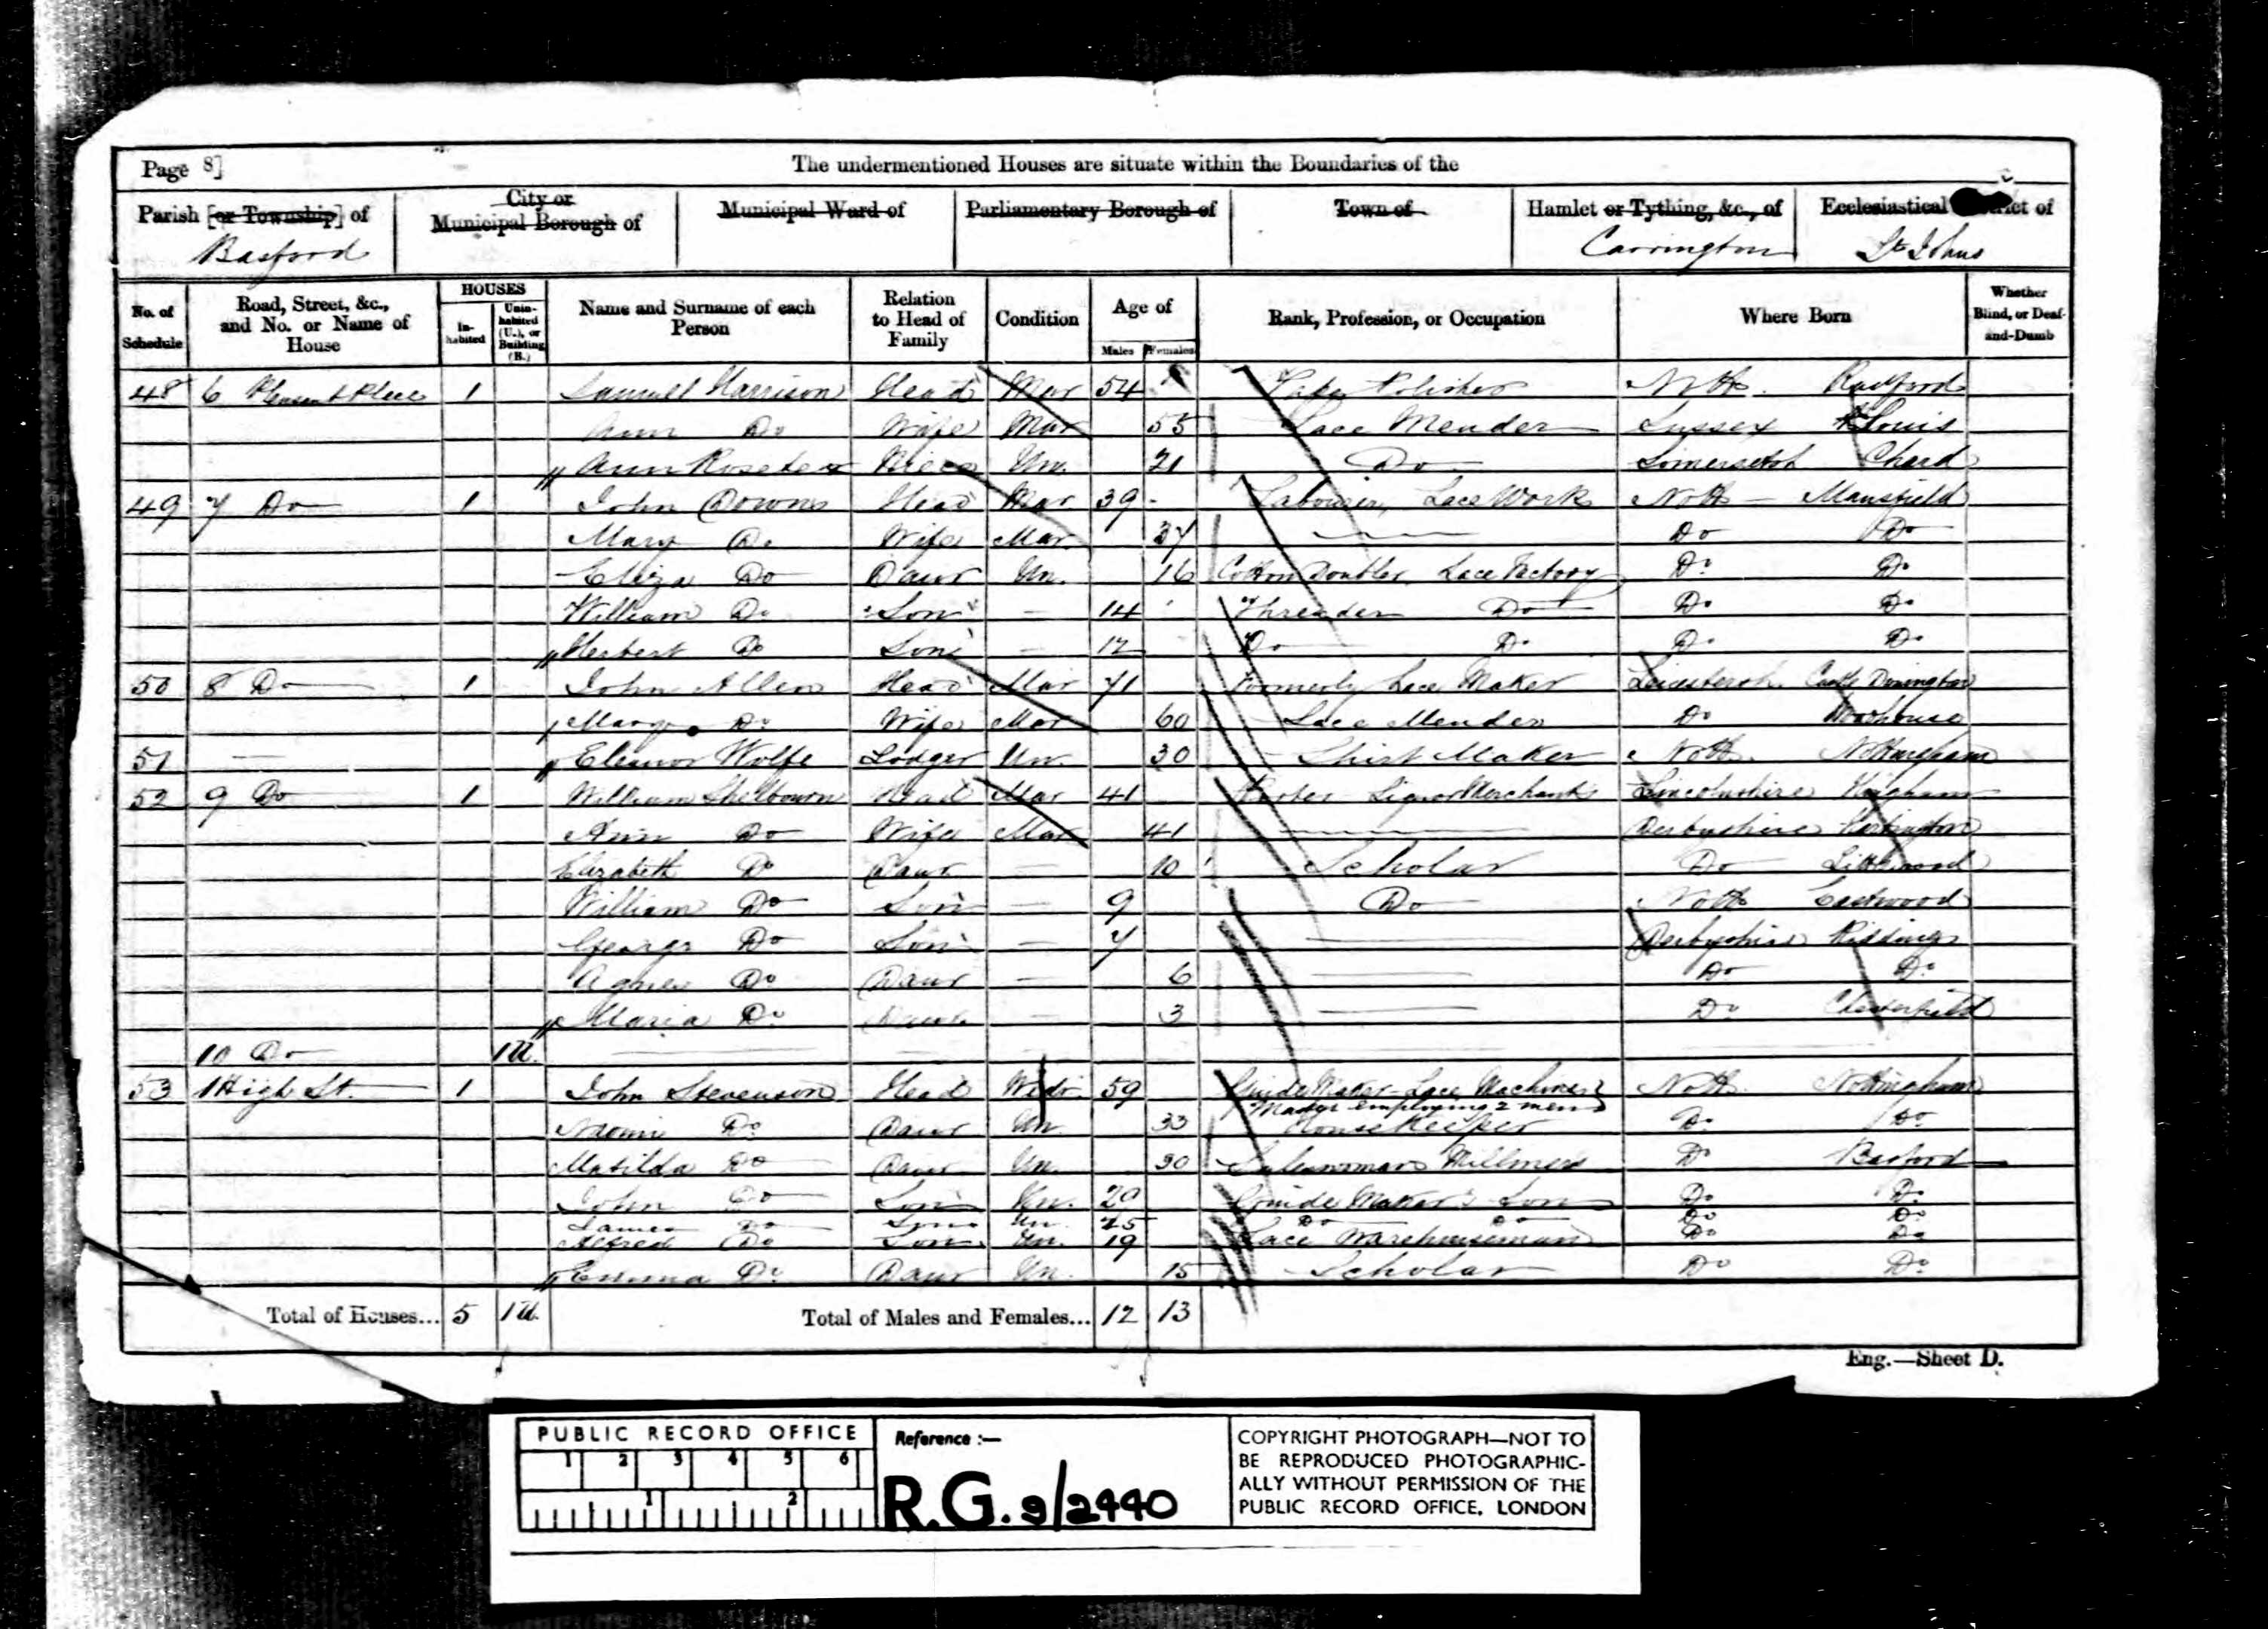 Page 8] The undermentioned Houses are situate within the Boundaries of the
Parish [or Township] of City or Municipal Borough of Municipal Ward of Parliamentary Borough of Town of Hamlet or Tything, &c., of Ecclesiastical of
Basford Carrington St Johns
No. of Schedule Road, Street, &c., and No. or Name of House HOUSES Inhabited Uninhabited (U.), or Building (B.) Name and Surname of each Person Relation to Head of Family Condition Age of Males Females Rank, Profession, or Occupation Where Born Whether Blind, or Deaf-and-Dumb
48 6 Pleasant Place 1 Samuel Harrison Head Mar 54 Notts. Radford
Ann Do Wife Mar 55 Lace Mender Sussex
Ann Niece Un. 21 Do Somersetsh Chard
49 7 Do 1 John Downs Head Mar 39 Labourer, Lace Work Notts Mansfield
Mary Do Wife Mar. 37 Do Do
Eliza Do Daur Un. 16 Cotton Doubler Lace Factory Do Do
William Do Son 14 Threader Do Do Do
Herbert Do Son 12 Do Do Do Do
50 8 Do 1 John Allen Head Mar 71 Formerly Lace Maker Leicestersh. Castle Donington
Mary Do Wife Mar 60 Lace Mender Do
51 Eleanor Wolfe Lodger Un. 30 Shirt Maker Notts. Nottingham
52 9 Do 1 William Shelbourn Head Mar 41 Porter Liquor Merchants Lincolnshire
Ann Do Wife Mar 41 Derbyshire Hartington
Elizabeth Do Daur 10 Scholar Do
William Do Son 9 Do Notts Eastwood
George Do Son 7 Derbyshire Riddings
Agnes Do Daur 6 Do Do
Maria Do Daur 3 Do Chesterfield
10 Do 1U.
53 1 High St. 1 John Stevenson Head Widr 59 Guide Maker Lace Machines Notts. Nottingham
Master employing 2 men
Naomi Do Daur Un 33 Housekeeper Do Do
Matilda Do Daur Un. 30 Saleswoman Do Basford
John Do Son Un. Guide Maker's Son Do Do
James Do Son Un. 25 Do Do Do Do
Alfred Do Son Un. 19 Lace Warehouseman Do Do
Emma Do Daur Un. 15 Scholar Do Do
Total of Houses... 5 1U. Total of Males and Females... 12 13
Eng.—Sheet D.
PUBLIC RECORD OFFICE
1 2 3 4 5 6
1 2
Reference :—
R.G. 9/2440
COPYRIGHT PHOTOGRAPH—NOT TO
BE REPRODUCED PHOTOGRAPHIC-
ALLY WITHOUT PERMISSION OF THE
PUBLIC RECORD OFFICE, LONDON